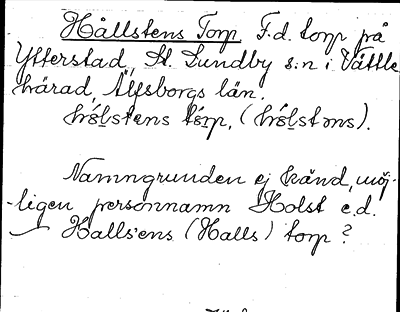 Hållstens Torp F.d. torp på
Ytterstad, St. Lundby s:n i Vättle
härad, Älfsborgs län.
hó̱lstens tó̱rp, (hó̱lstəns).
Namngrunden ej känd, möj-
ligen personnamn Holst e.d.
Halls'ens (Halls) torp?